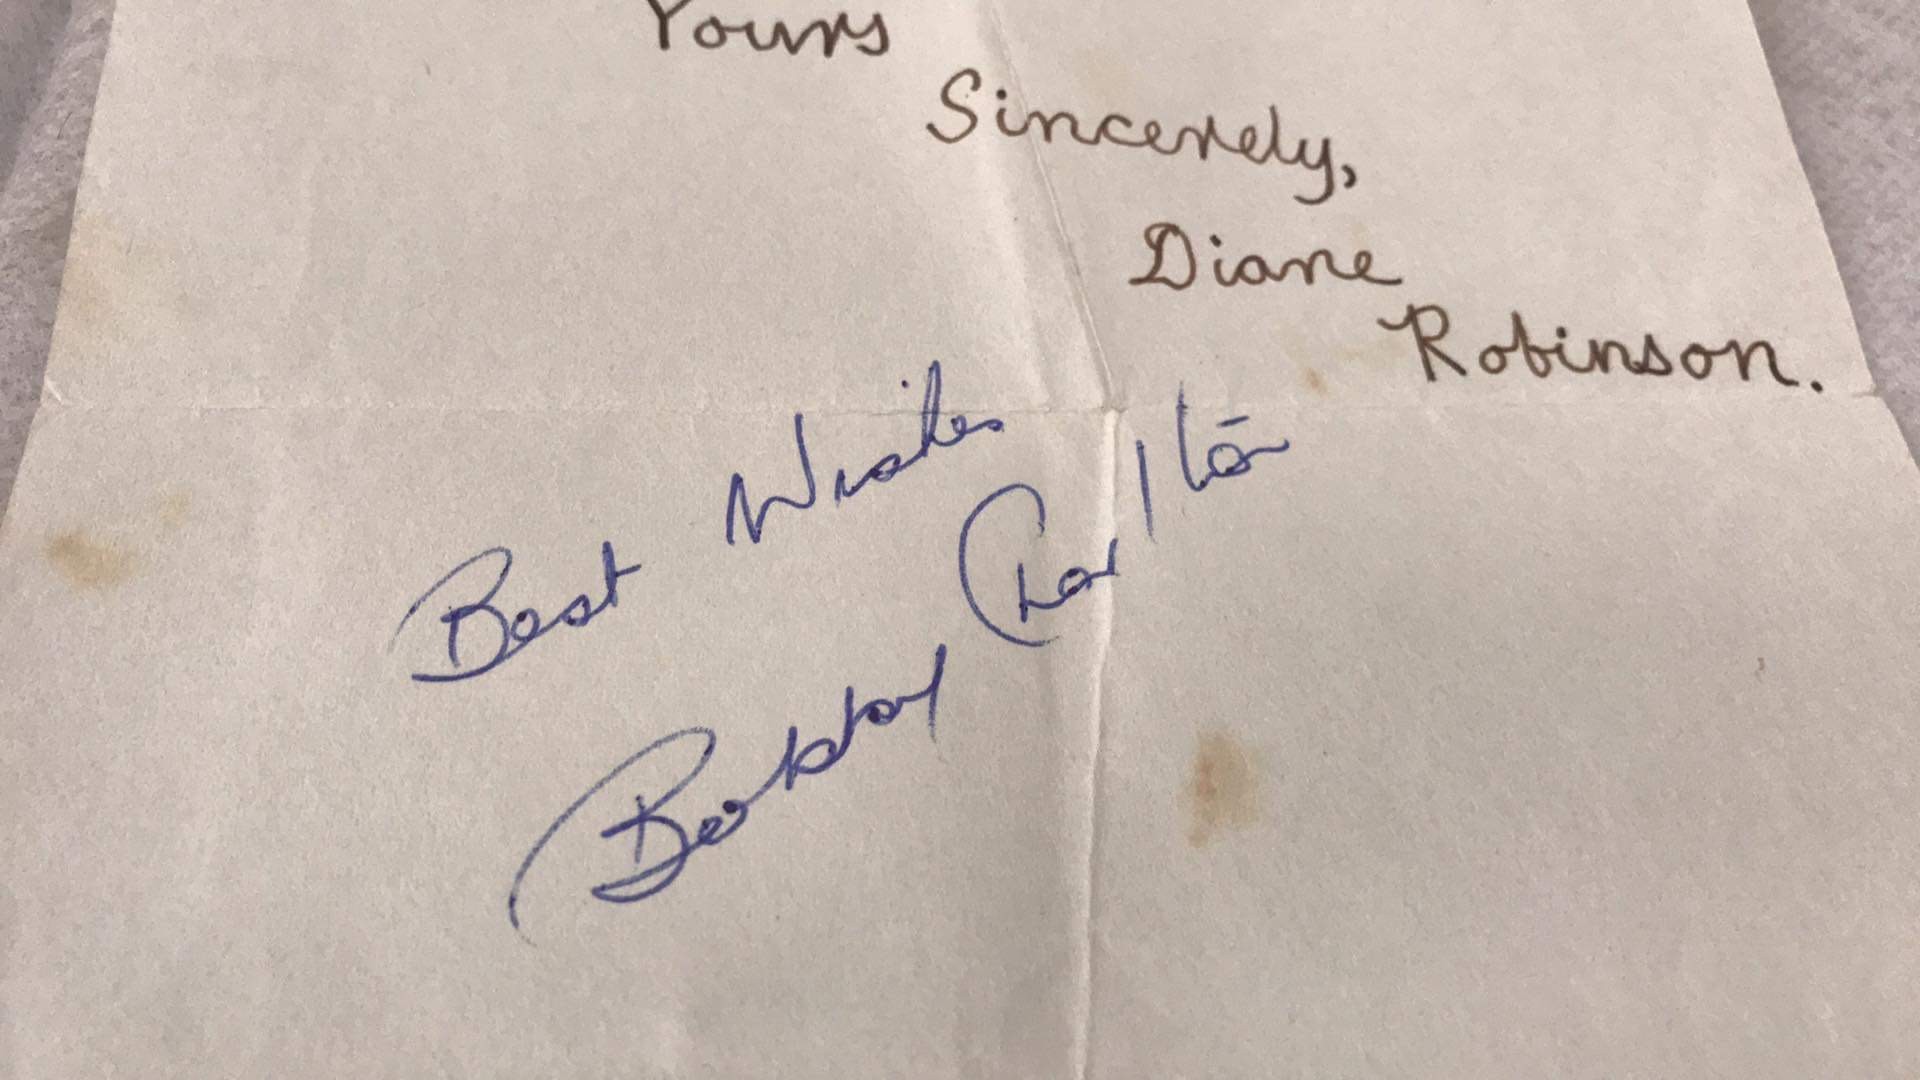 Yours
Sincerely,
Diane
Robinson.
Best Wishes
Bobby Charlton